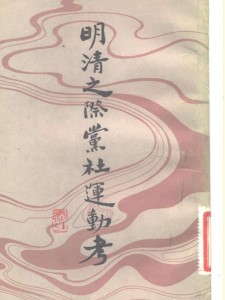 明清之際黨社運動考